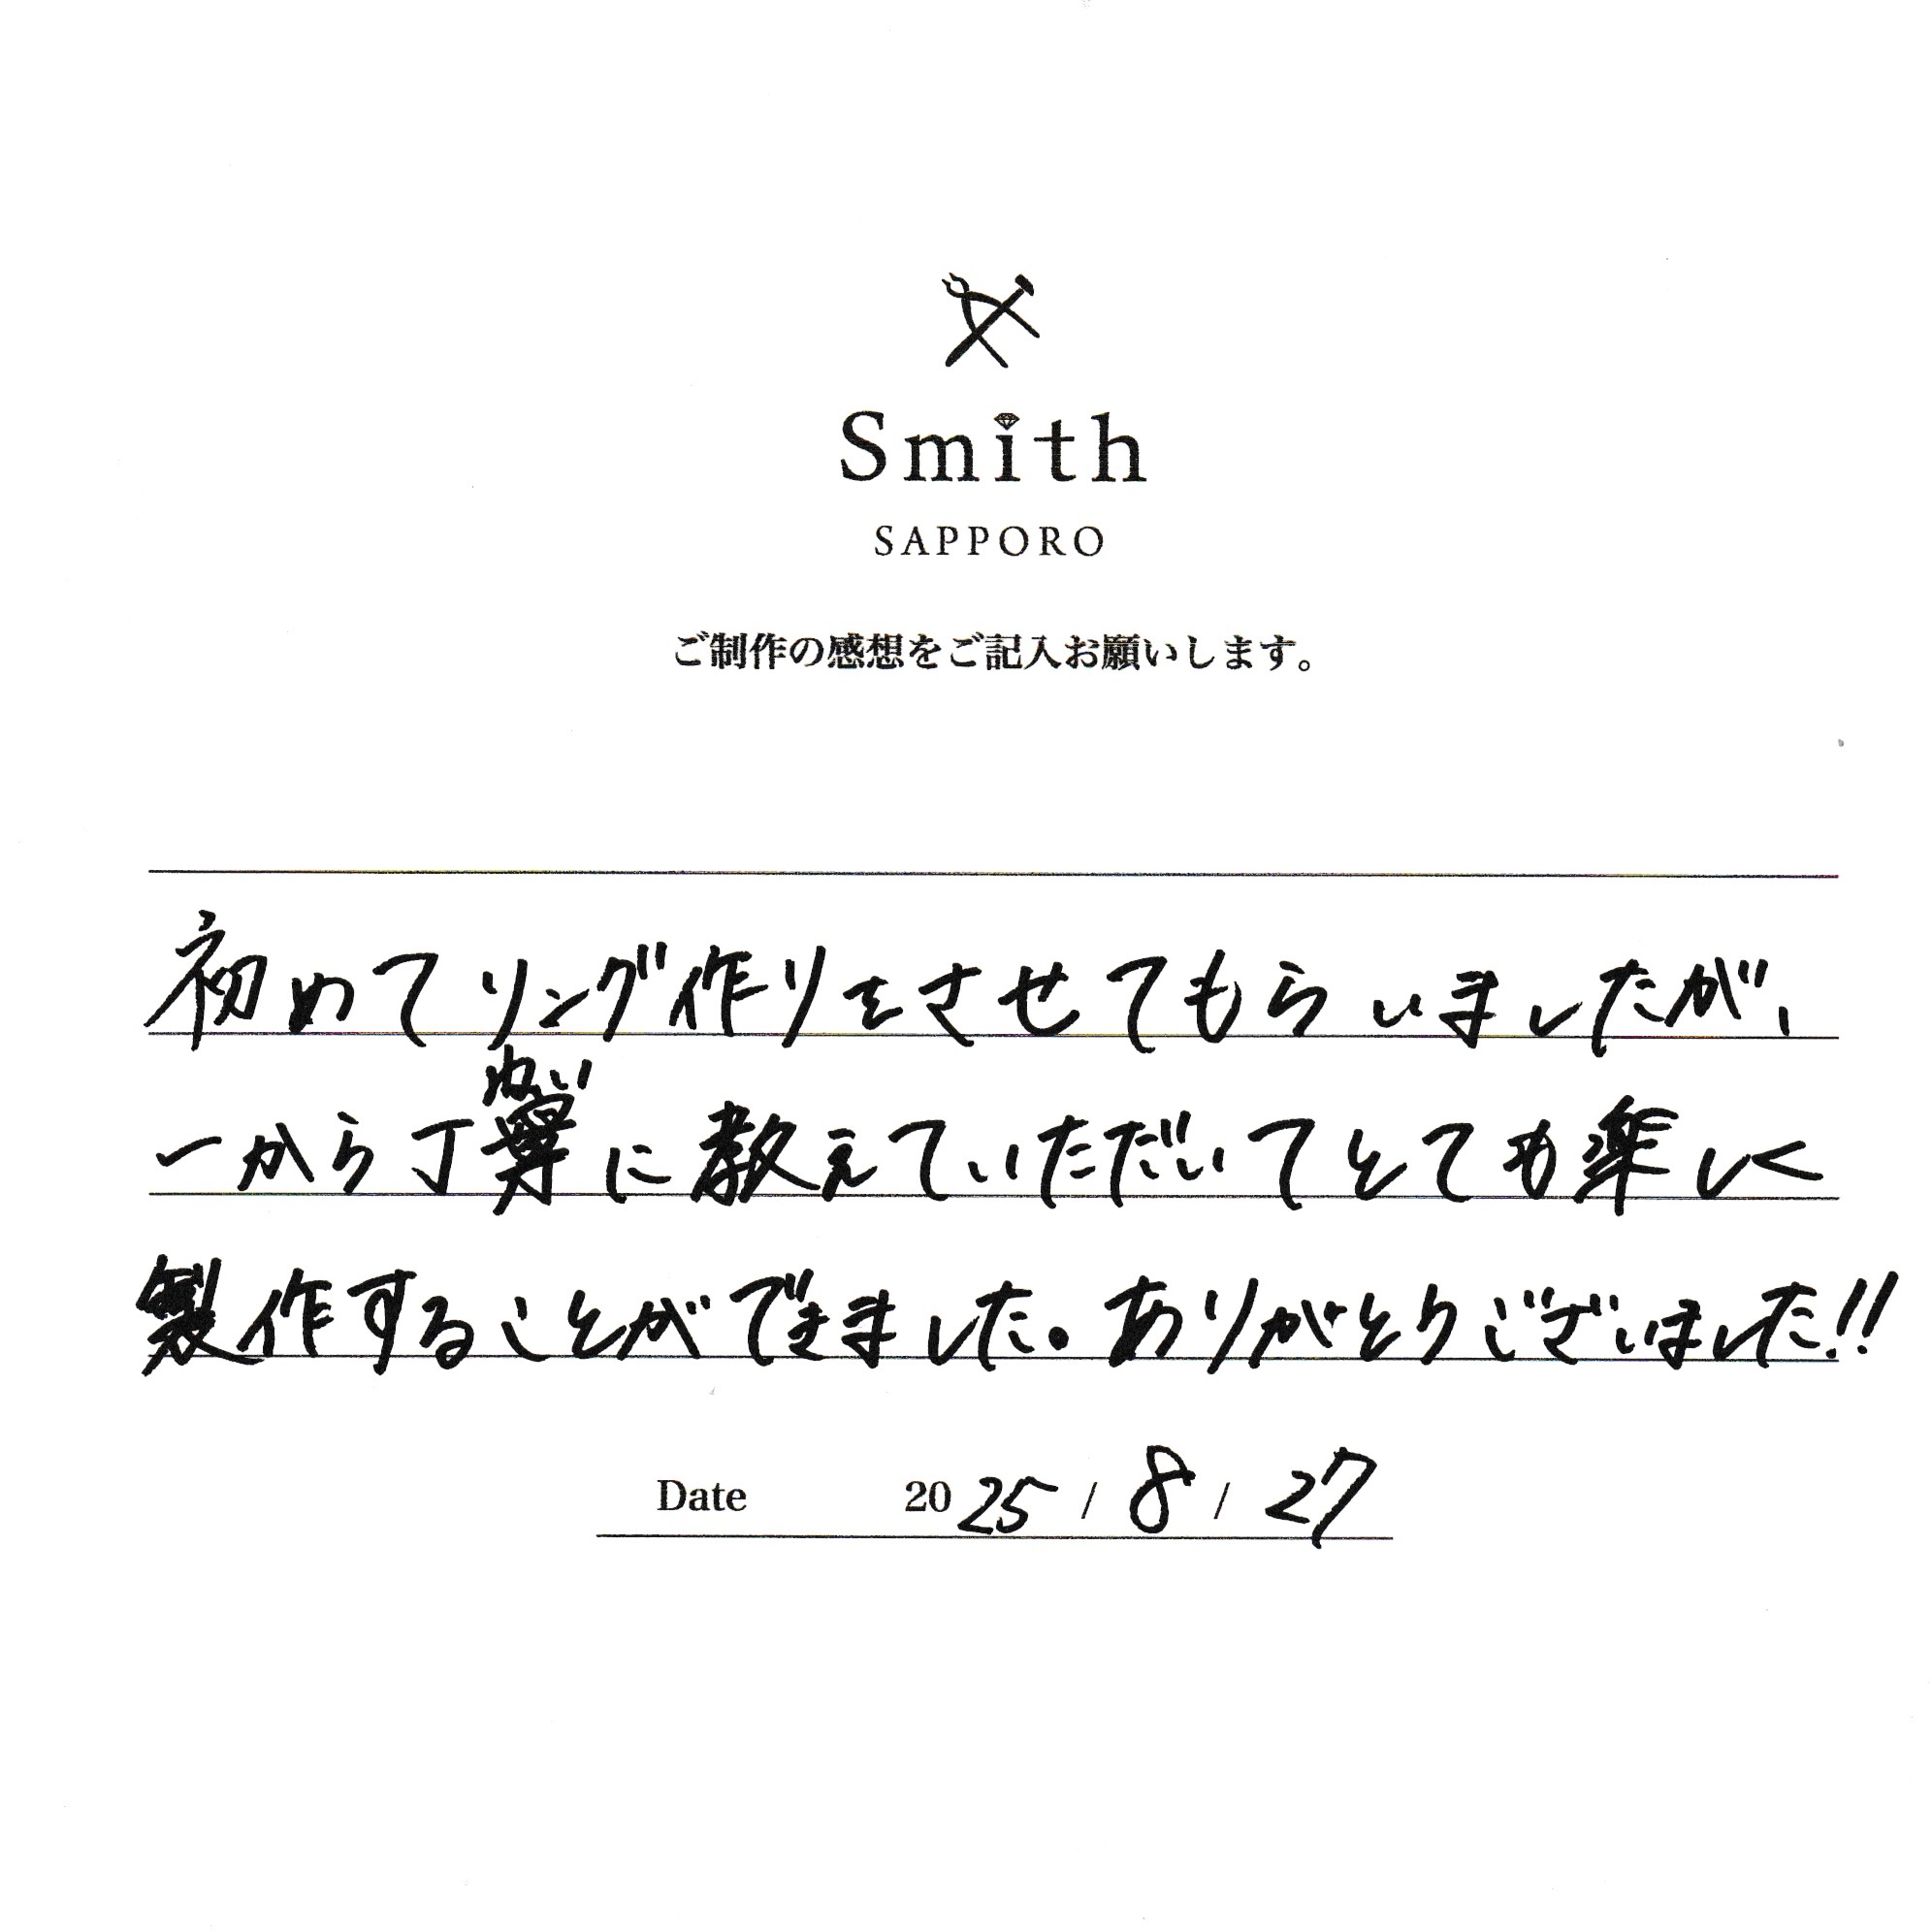 Smith
SAPPORO
ご制作の感想をご記入お願いします。
初めてリング作りをさせてもらいましたが、
ねい
一から丁寧に教えていただいてとても楽しく
製作することができました。ありがとうございました!!
Date 2025/8/27